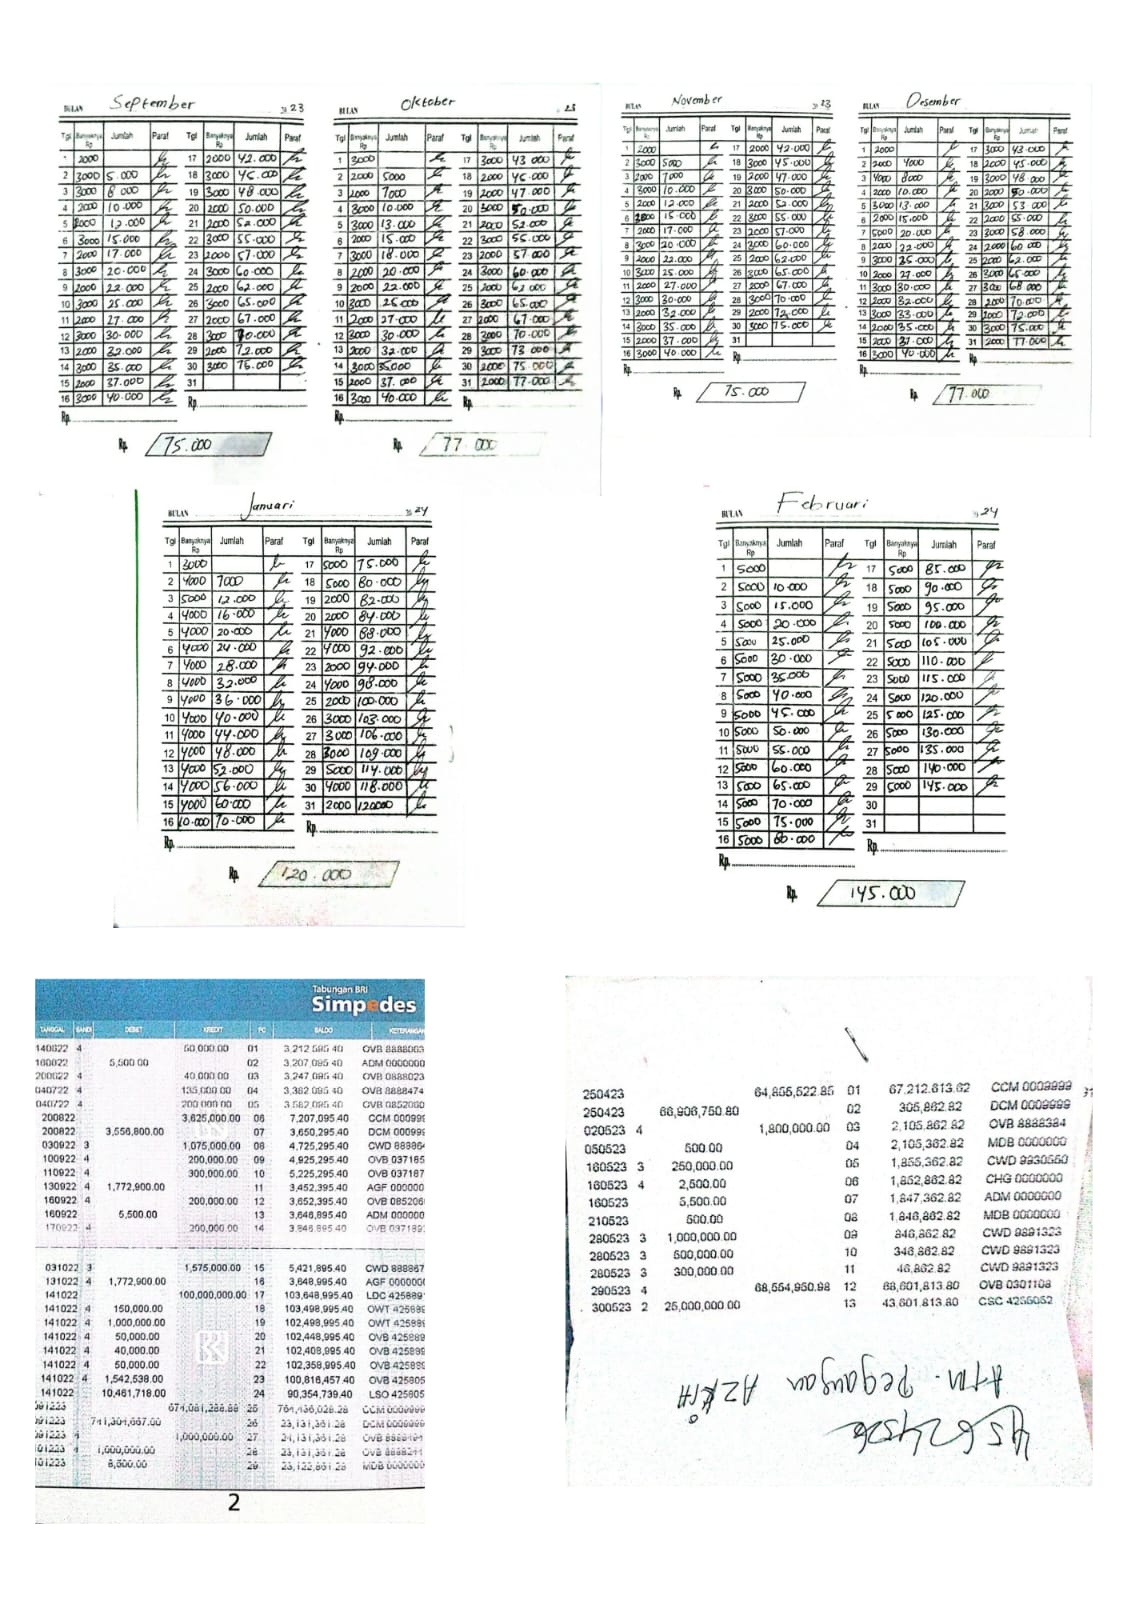 BULAN September 23
Tgl Banyaknya Rp Jumlah Paraf Tgl Banyaknya Rp Jumlah Paraf
2000 17 2000 42.000
2 3000 5.000 18 3000 45.000
3 3000 8000 19 3000 48.000
4 2000 10.000 20 2000 50.000
5 2000 12.000 21 2000 52.000
6 3000 15.000 22 3000 55.000
7 2000 17.000 23 2000 57.000
8 3000 20.000 24 3000 60.000
9 2000 22.000 25 2000 62.000
10 3000 25.000 26 3000 65.000
11 2000 27.000 27 2000 67.000
12 3000 30.000 28 3000 70.000
13 2000 32.000 29 2000 72.000
14 3000 35.000 30 3000 75.000
15 2000 37.000 31
16 3000 40.000 Rp
Rp
Rp 75.000
BULAN Oktober 23
Tgl Banyaknya Rp Jumlah Paraf Tgl Banyaknya Rp Jumlah Paraf
1 3000 17 3000 43.000
2 2000 5000 18 2000 45.000
3 2000 7000 19 2000 47.000
4 3000 10.000 20 3000 50.000
5 3000 13.000 21 2000 52.000
6 2000 15.000 22 3000 55.000
7 3000 18.000 23 2000 57.000
8 2000 20.000 24 3000 60.000
9 2000 22.000 25 2000 62.000
10 3000 25.000 26 3000 65.000
11 2000 27.000 27 2000 67.000
12 3000 30.000 28 3000 70.000
13 2000 32.000 29 3000 73.000
14 3000 35.000 30 2000 75.000
15 2000 37.000 31 2000 77.000
16 3000 40.000
Rp
Rp 77.000
BULAN November 23
Tgl Banyaknya Rp Jumlah Paraf Tgl Banyaknya Rp Jumlah Paraf
1 2000 17 2000 42.000
2 3000 5000 18 3000 45.000
3 2000 7000 19 2000 47.000
4 3000 10.000 20 3000 50.000
5 2000 12.000 21 2000 52.000
6 3000 15.000 22 3000 55.000
7 2000 17.000 23 2000 57.000
8 3000 20.000 24 3000 60.000
9 2000 22.000 25 2000 62.000
10 3000 25.000 26 3000 65.000
11 2000 27.000 27 2000 67.000
12 3000 30.000 28 3000 70.000
13 2000 32.000 29 2000 72.000
14 3000 35.000 30 3000 75.000
15 2000 37.000 31
16 3000 40.000 Rp
Rp 75.000
BULAN Desember
Tgl Banyaknya Rp Jumlah Paraf Tgl Banyaknya Rp Jumlah Paraf
1 2000 17 3000 43.000
2 2000 4000 18 2000 45.000
3 4000 8000 19 3000 48.000
4 2000 10.000 20 2000 50.000
5 3000 13.000 21 3000 53.000
6 2000 15.000 22 2000 55.000
7 5000 20.000 23 3000 58.000
8 2000 22.000 24 2000 60.000
9 3000 25.000 25 2000 62.000
10 2000 27.000 26 3000 65.000
11 3000 30.000 27 3000 68.000
12 2000 32.000 28 2000 70.000
13 3000 33.000 29 2000 72.000
14 2000 35.000 30 3000 75.000
15 2000 37.000 31 2000 77.000
16 3000 40.000
Rp 77.000
BULAN Januari 24
Tgl Banyaknya Rp Jumlah Paraf Tgl Banyaknya Rp Jumlah Paraf
1 3000 17 5000 75.000
2 4000 7000 18 5000 80.000
3 5000 12.000 19 2000 82.000
4 4000 16.000 20 2000 84.000
5 4000 20.000 21 4000 88.000
6 4000 24.000 22 4000 92.000
7 4000 28.000 23 2000 94.000
8 4000 32.000 24 4000 98.000
9 4000 36.000 25 2000 100.000
10 4000 40.000 26 3000 103.000
11 4000 44.000 27 3000 106.000
12 4000 48.000 28 3000 109.000
13 4000 52.000 29 5000 114.000
14 4000 56.000 30 4000 118.000
15 4000 60.000 31 2000 120000
16 10.000 70.000 Rp
Rp
Rp 120.000
BULAN Februari 24
Tgl Banyaknya Rp Jumlah Paraf Tgl Banyaknya Rp Jumlah Paraf
1 5000 17 5000 85.000
2 5000 10.000 18 5000 90.000
3 5000 15.000 19 5000 95.000
4 5000 20.000 20 5000 100.000
5 5000 25.000 21 5000 105.000
6 5000 30.000 22 5000 110.000
7 5000 35.000 23 5000 115.000
8 5000 40.000 24 5000 120.000
9 5000 45.000 25 5000 125.000
10 5000 50.000 26 5000 130.000
11 5000 55.000 27 5000 135.000
12 5000 60.000 28 5000 140.000
13 5000 65.000 29 5000 145.000
14 5000 70.000 30
15 5000 75.000 31
16 5000 80.000 Rp
Rp
Rp 145.000
Tabungan BRI
Simpedes
TANGGAL SANDI DEBET KREDIT PC SALDO KETERANGAN
140622 4 50,000.00 01 3,212,595.40 OVB 8888003
160622 5,500.00 02 3,207,095.40 ADM 0000000
200622 4 40,000.00 03 3,247,095.40 OVB 0888023
040722 4 135,000.00 04 3,382,095.40 OVB 8888474
040722 4 200,000.00 05 3,582,095.40 OVB 0852060
200822 3,625,000.00 06 7,207,095.40 CCM 000999
200822 3,556,800.00 07 3,650,295.40 DCM 000999
030922 3 1,075,000.00 08 4,725,295.40 CWD 88386
100922 4 200,000.00 09 4,925,295.40 OVB 037165
110922 4 300,000.00 10 5,225,295.40 OVB 037187
130922 4 1,772,900.00 11 3,452,395.40 AGF 000000
160922 4 200,000.00 12 3,652,395.40 OVB 085206
160922 5,500.00 13 3,646,895.40 ADM 000000
170922 4 200,000.00 14 3,846,895.40 OVB 037189
031022 3 1,575,000.00 15 5,421,895.40 CWD 888867
131022 4 1,772,900.00 16 3,648,995.40 AGF 000000
141022 100,000,000.00 17 103,648,995.40 LDC 425889
141022 4 150,000.00 18 103,498,995.40 OWT 425889
141022 4 1,000,000.00 19 102,498,995.40 OWT 425889
141022 4 50,000.00 20 102,448,995.40 OVB 425889
141022 4 40,000.00 21 102,408,995.40 OVB 425889
141022 4 50,000.00 22 102,358,995.40 OVB 425889
141022 4 1,542,538.00 23 100,816,457.40 OVB 425805
141022 10,461,718.00 24 90,354,739.40 LSO 425805
091223 25 CCM 0009999
091223 26 23,131,361.28 DCM 0009999
091223 4 1,000,000.00 27 24,131,361.28 OVB
101223 4 1,000,000.00 28 23,131,361.28 OVB
101223 8,500.00 29 23,122,861.28 MDB 0000000
2
250423 64,855,522.85 01 67,212,613.62 CCM 0009999
250423 66,906,750.80 02 305,862.82 DCM 0009999
020523 4 1,800,000.00 03 2,105,862.82 OVB 8888384
050523 500.00 04 2,105,362.82 MDB 0000000
160523 3 250,000.00 05 1,855,362.82 CWD 9930550
160523 4 2,500.00 06 1,852,862.82 CHG 0000000
160523 5,500.00 07 1,847,362.82 ADM 0000000
210523 500.00 08 1,846,862.82 MDB 0000000
280523 3 1,000,000.00 09 846,862.82 CWD 9891323
280523 3 500,000.00 10 346,862.82 CWD 9891323
280523 3 300,000.00 11 46,862.82 CWD 9891323
290523 4 68,554,950.98 12 68,601,813.80 OVB 0301108
300523 2 25,000,000.00 13 43,601,813.80 CSC 4255052
ATM. Pegangan AZKIA